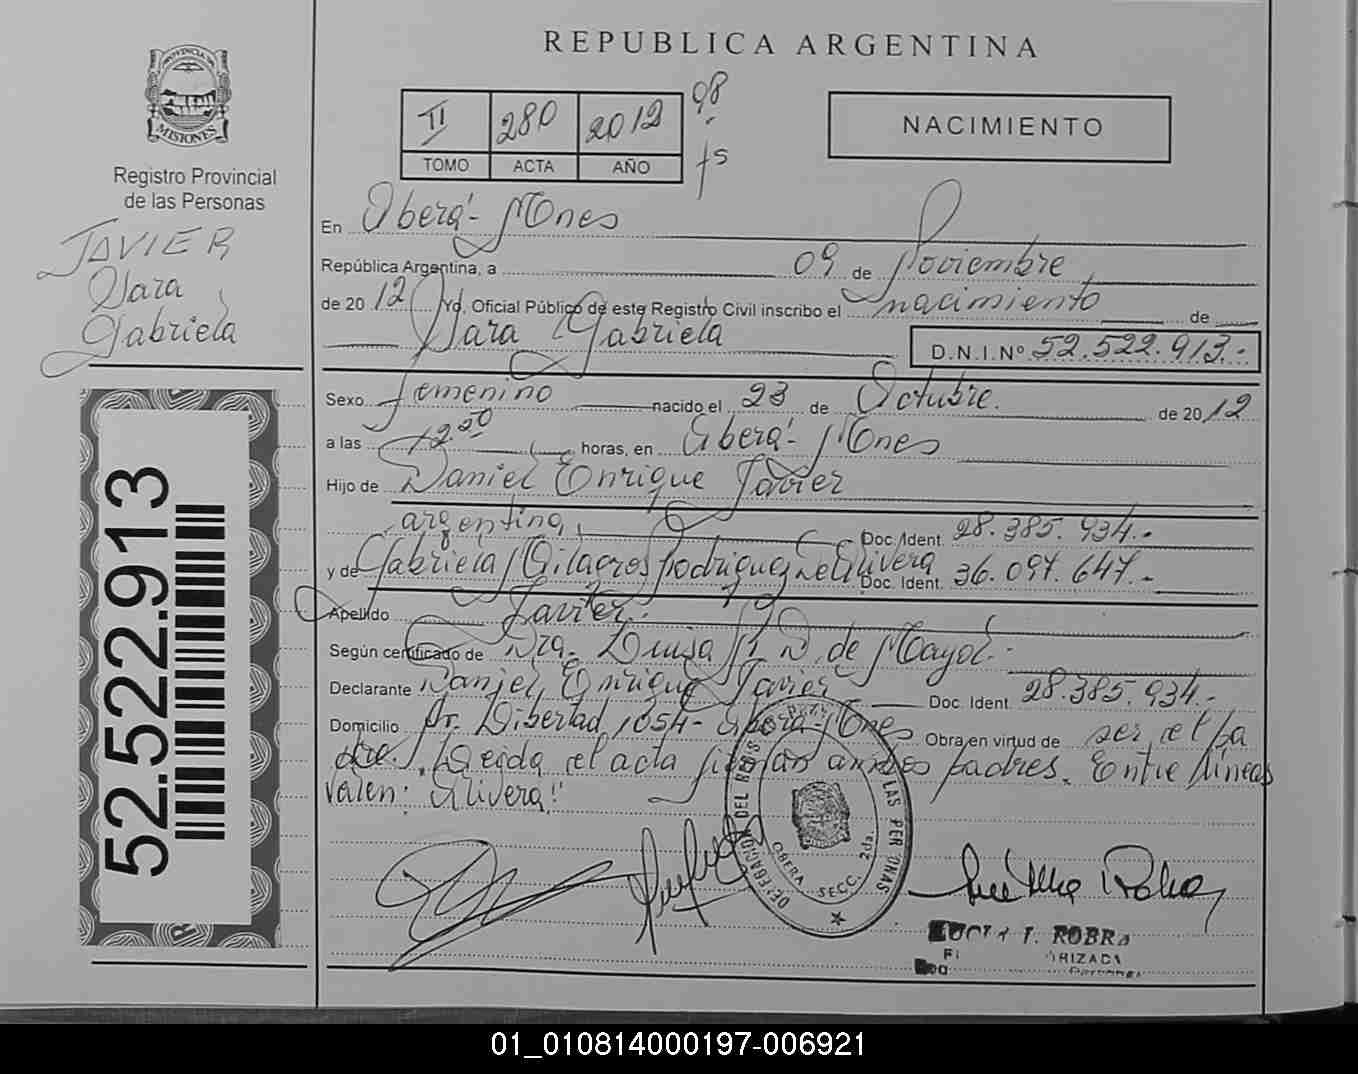 REPUBLICA ARGENTINA
PROVINCIA DE
MISIONES
Registro Provincial
de las Personas
JAVIER
Sara
Gabriela
52.522.913
II 280 2012 98
TOMO ACTA AÑO fs
NACIMIENTO
En Oberá - Mnes
República Argentina, a 09 de Noviembre
de 2012 Yo, Oficial Público de este Registro Civil inscribo el nacimiento de
Sara Gabriela D.N.I.Nº 52.522.913.-
Sexo femenino nacido el 23 de Octubre. de 2012
a las 12.20 horas, en Oberá - Mnes
Hijo de Daniel Enrique Javier
argentina, Doc. Ident. 28.385.934.-
y de Gabriela Milagros Rodriguez De Olivera Doc. Ident. 36.097.647.-
Apellido Javier.
Según certificado de Dra. Luisa M. D. de Mayol.-
Declarante Daniel Enrique Javier Doc. Ident. 28.385.934.-
Domicilio Av. Libertad 1054 - Oberá - Mnes Obra en virtud de ser el pa
dre. Leida el acta firman ambos padres. Entre líneas
valen: "Olivera"
DELEGACION DEL REGIS LAS PERSONAS
OBERA SECC. 2da.
LUCIA I. ROBRA
01_010814000197-006921